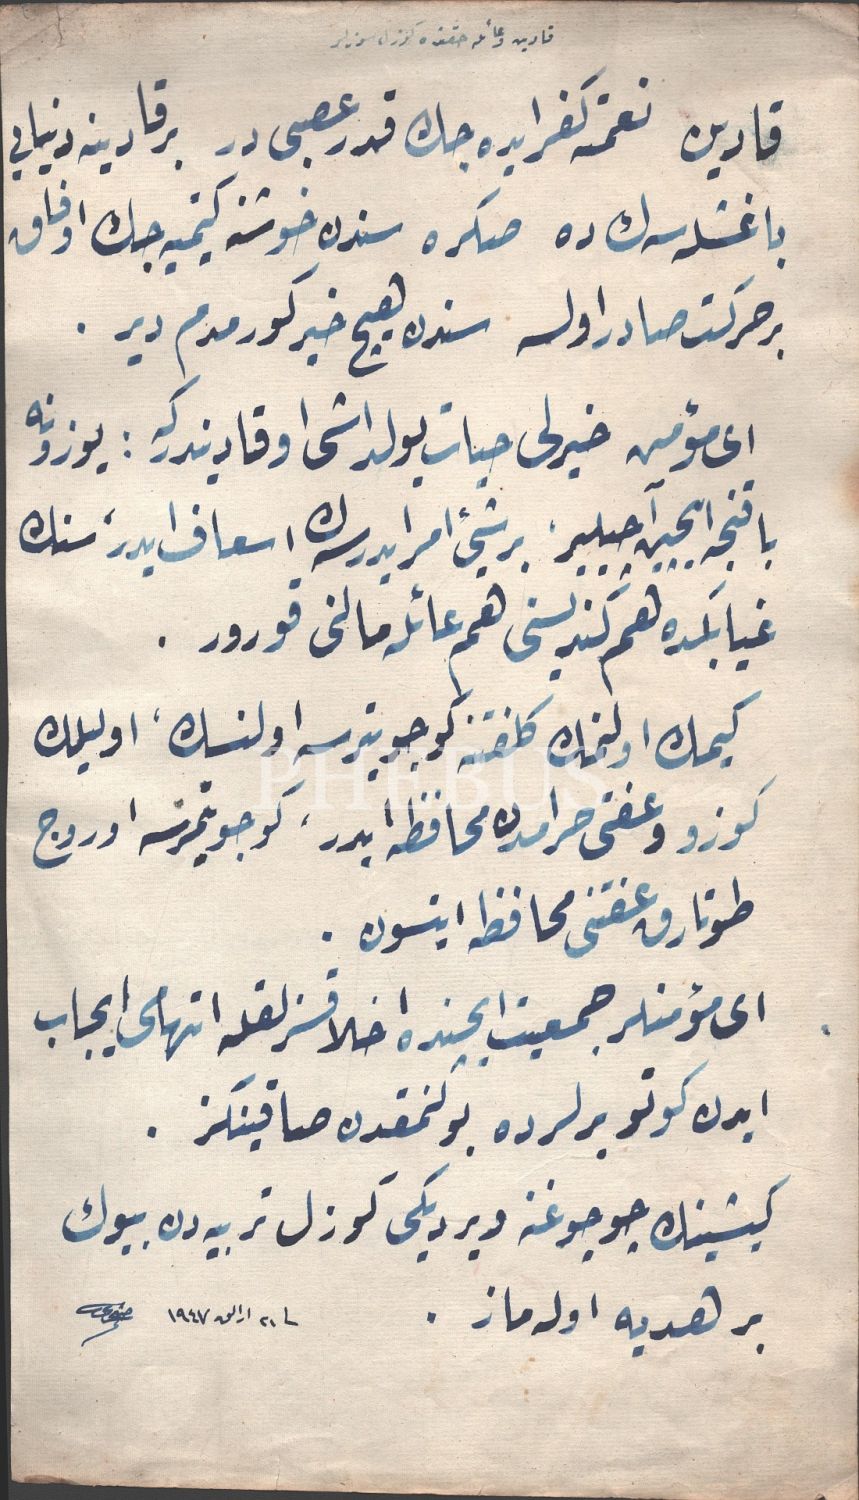 قادین و عائله حقنده كوزل سوزلر
قادین نعمته كفر ایده جك قدر عصبی در بر قادینه دنیایی
باغشلسه ك ده صكره سندن خوشنه كیتمیه جك اوفاق
بر حركت صادر اولسه سندن هیچ خیر كورمدم دیر .
ای مؤمن خیرلی حیات یولداشی او قادیندر كه : یوزونه
باقنجه ایچین آچیلیر ، بر شیئ امر ایدرسه ك اسعاف ایدر ، سنك
غیابكده هم كندیسنی هم عائله مالنی قورور .
كیمك اولنمك كلفتنه كوجو یترسه اولنسك ، اولیلك
كوزو و عفتی حرامدن محافظه ایدر ، كوجو یتمزسه اوروج
طوتارق عفتنی محافظه ایتسون .
ای مؤمنلر جمعیت ایچنده اخلاقسزلقله اتهامی ایجاب
ایدن كوتو یرلرده بولنمقدن صاقینكز .
كیشینك چوجوغنه ویردیكی كوزل تربیه دن بیوك
بر هدیه اوله ماز .
٢١ ارالق ١٩٤٧
PHEBUS